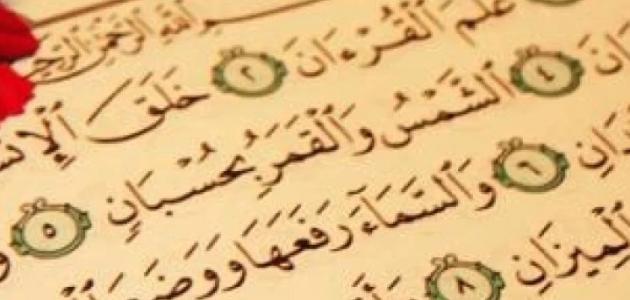 ٱللَّهِ ٱلرَّحْمَٰنِ ٱلرَّحِيمِ
عَلَّمَ ٱلْقُرْءَانَ ٢ خَلَقَ
ٱلشَّمْسُ وَٱلْقَمَرُ بِحُسْبَانٍ ٥
٤
٦ وَٱلسَّمَآءَ رَفَعَهَا وَوَضَعَ
ٱلْمِيزَانِ ٨